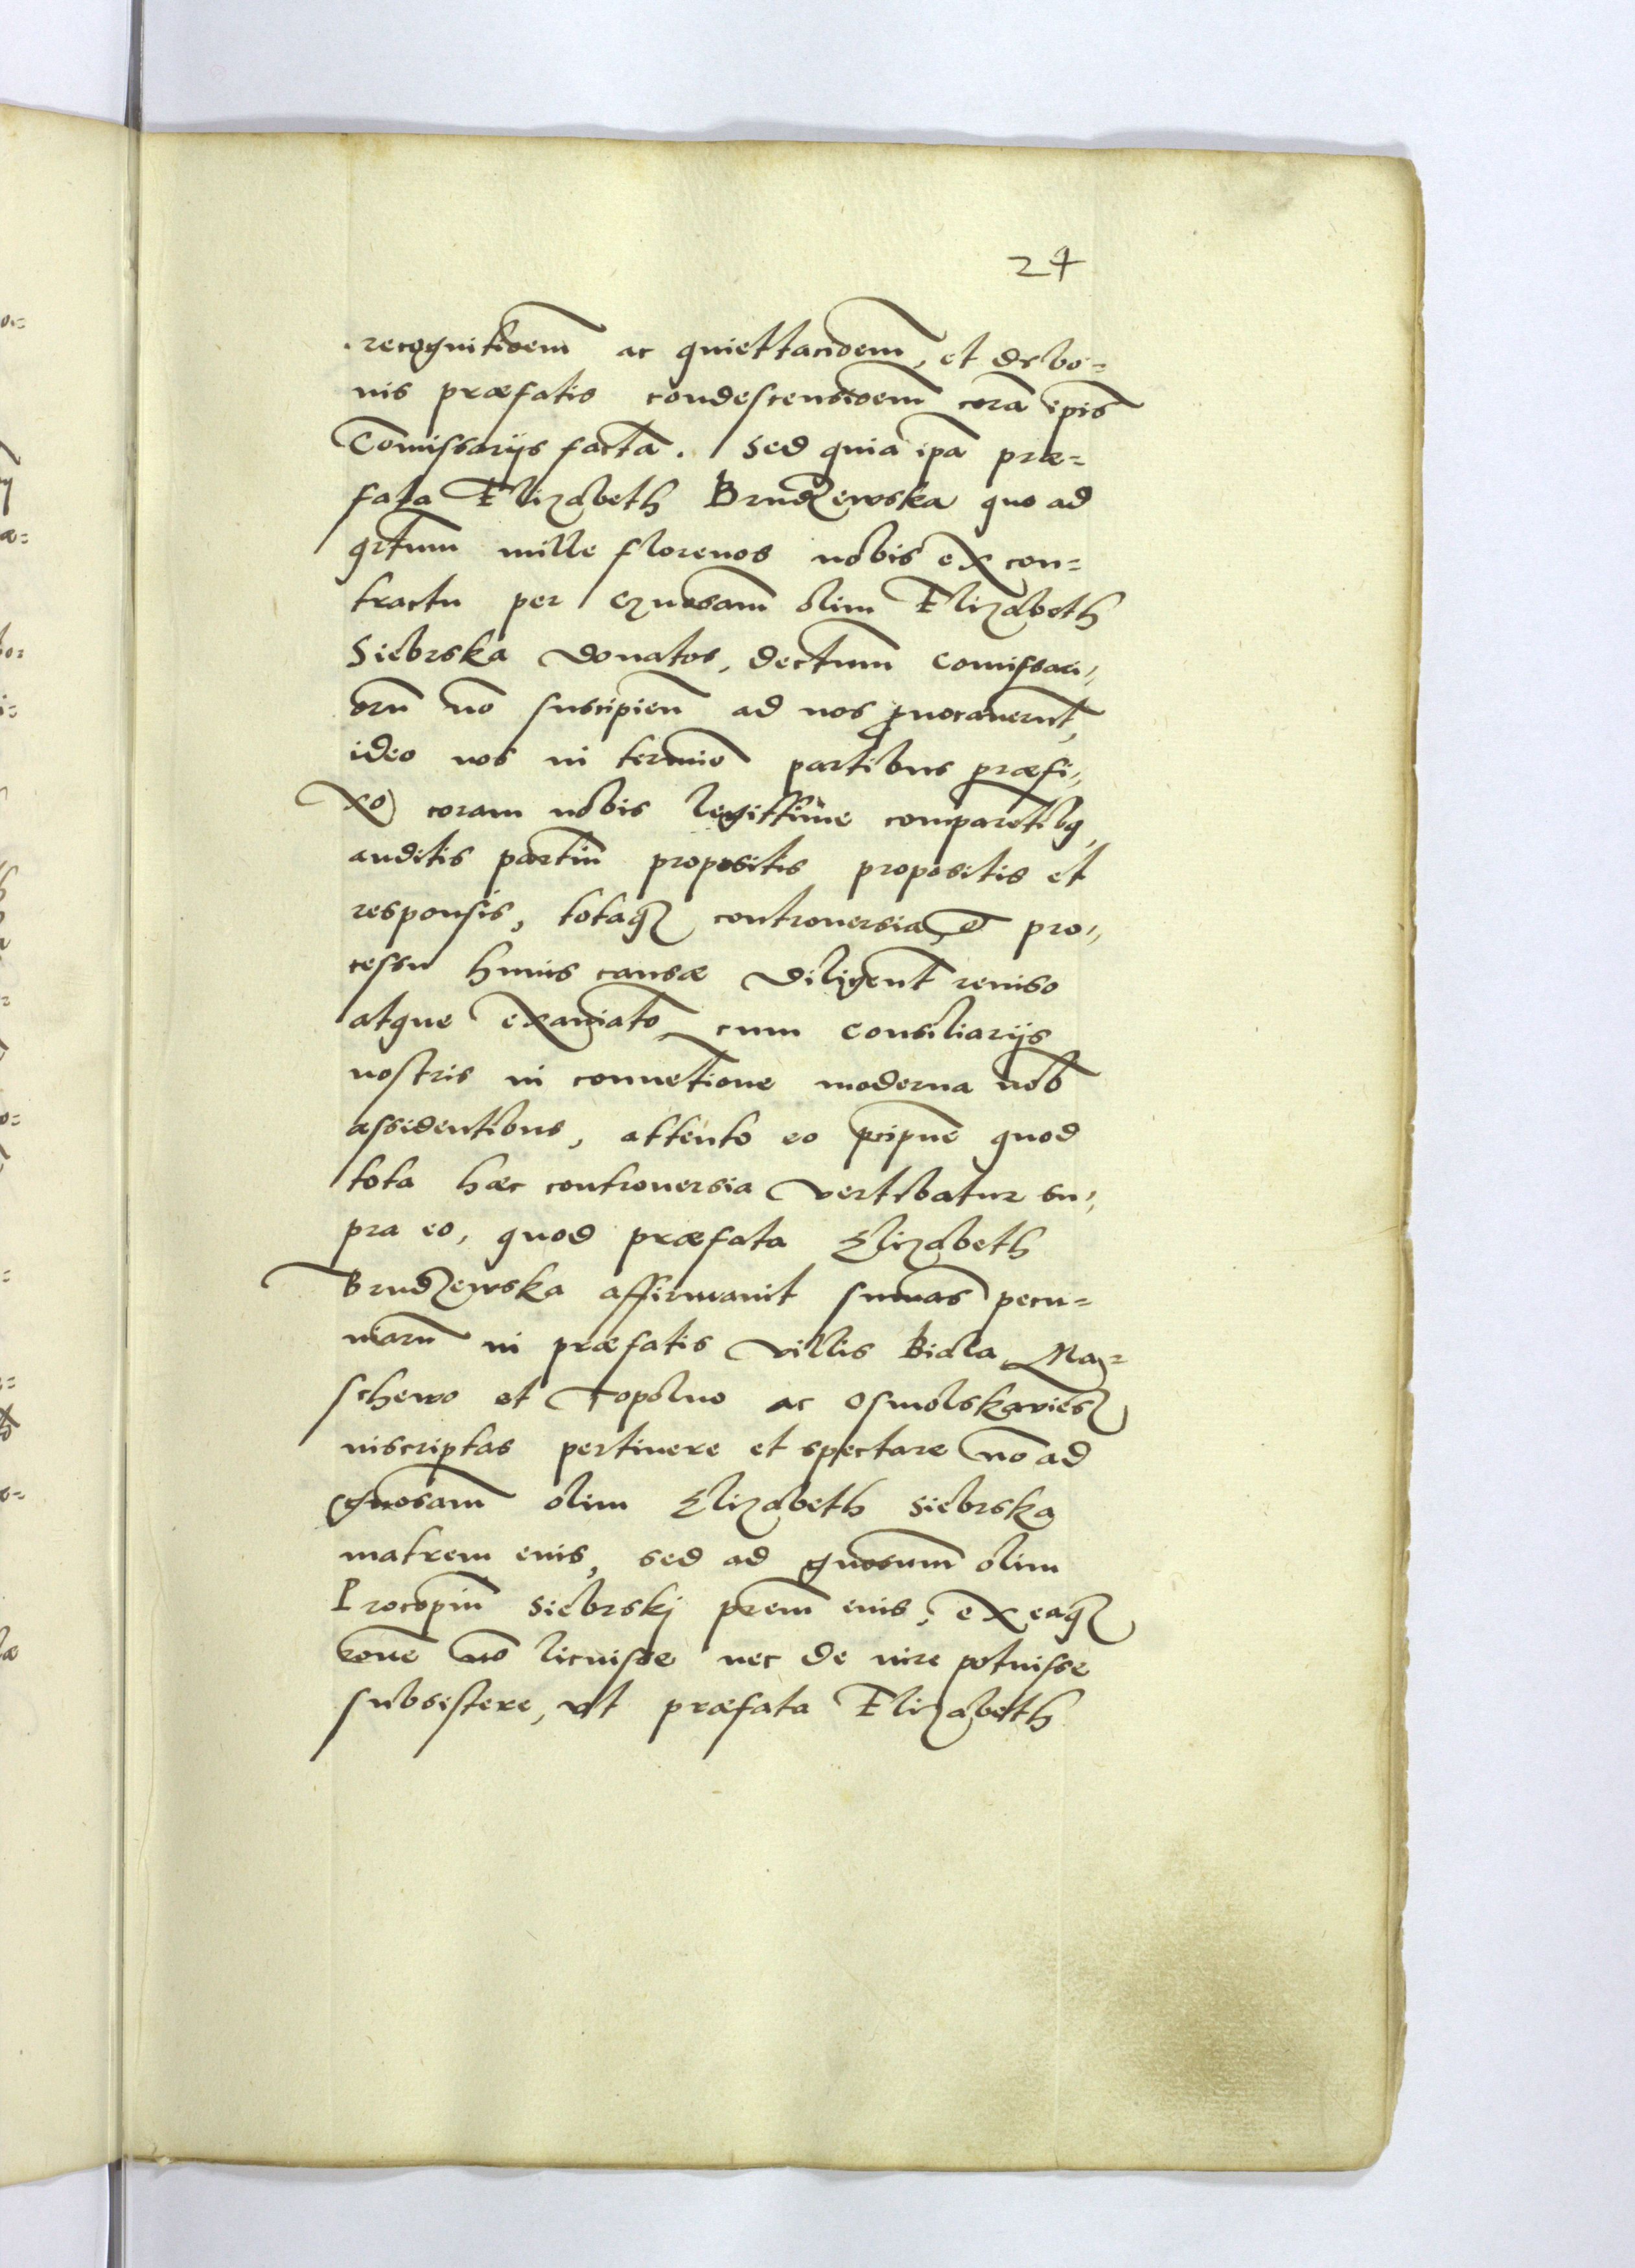 24
recognitioem̄ ac quiettacioem̄, et de bo=
nis præfatis condescensioem̄ corā ip̄is
Com̄issarijs factā. Sed quia ip̄a præ=
fata Elizabeth Brudzewska quo ad
qrtum̄ mille florenos nobis ex con=
tractu per gn̄osam olim Elizabeth
Siebrska donatos, dectum̄ Com̄issari,,
orū nō suscipien̄ ad nos ꝓuocauerūt,
ideo nos in termiō partibus præfi,,
xo coram nobis legittime comparētibꝫ,
auditis partiū propositis propositis et
responsis, totaqꝫ controuersia et pro,,
cessu huius causæ diligent̄ reuiso
atque examiato cum Consiliarijs
nostris in conuētione moderna nob̄
assidentibus, attento eo p̄cipue quod
tota hæc controuersia vertebatur su,,
pra eo, quod præfata Elizabeth
Brudzewska affirmauit sum̄as pecu=
niarū in præfatis villis Biala, Ma=
schewo et Topolno ac Osmolskawiesz
inscriptas pertinere et spectare nō ad
gn̄osam olim Elizabeth Siebrska
matrem eius, sed ad gn̄osum olim
Procopiū Siebrskj p̄rem eius, ex eaqꝫ
rōne nō licuisse nec de iure potuisse
subsistere, vt præfata Elizabeth